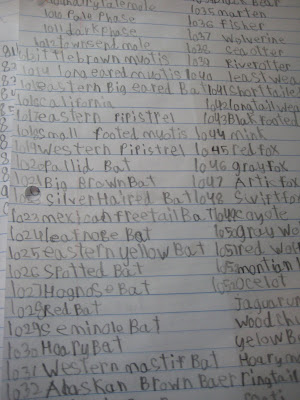 1010 Pale Phase
1011 dark phase
1012 townsend mole
littlebrown myotis
1014 long eared myotis
eastern Big eared Bat
california
eastern pipistrel
small footed myotis
1019 Western Pipistrel
1020 Pallid Bat
1021 Big Brown Bat
Silver Haired Bat
1023 mexican freetail Bat
1024 leafnose Bat
1025 eastern yellow Bat
1026 Spotted Bat
1027 Hognose Bat
1028 Red Bat
1029 Seminole Bat
1030 Hoary Bat
1031 Western mastif Bat
1032 Alaskan Brown Baer
Black Bear
1035 marten
1036 Fisher
1037 Wolverine
1038 Sea otter
1039 River otter
1040 least wea
1041 Short tailes
1042 long tail wea
1043 Blak footed
1044 mink
1045 red fox
1046 gray fox
1047 Artic Fox
1048 Swift fox
1049 Coyote
1050 gray wo
1051 red wol
1052 montian l
1053 Ocelot
Jaguarun
Woodchu
yellow B
Hoary m
ringtail